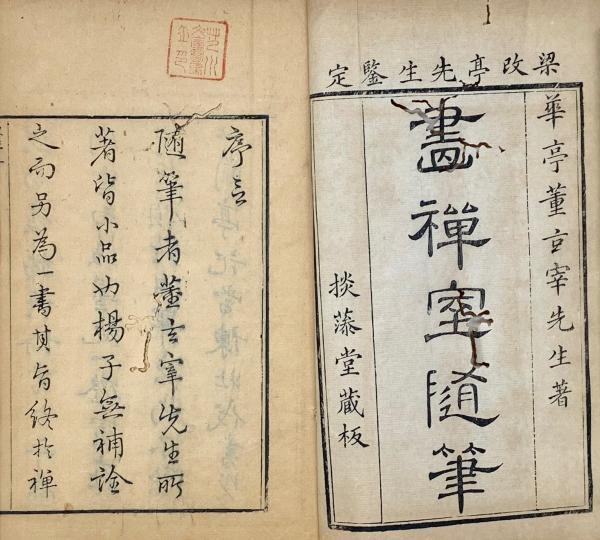 梁改亭先生鑒定
華亭董玄宰先生著
畫禪室隨筆
掞藻堂藏板
序言
随筆者董玄宰先生所
著皆小品也楊子無補詮
之而另為一書其旨終於禪